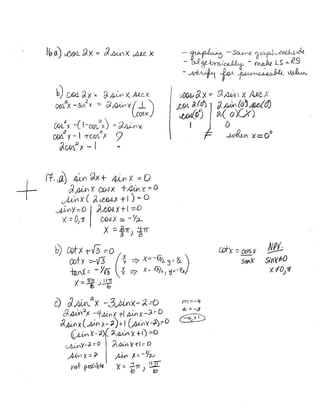 16 a) cos 2x = 2 sin x sec x
- graphing - same graph
- algebraically - make LS = RS
- verify for permissable value
b) cos 2x = 2 sin x sec x
cos²x - sin²x = 2 sin x (1/cosx)
cos²x - (1-cos²x) = 2 sin x
cos²x - 1 + cos²x ?
2cos²x - 1
cos 2x = 2 sin x sec x
cos 2(0) | 2 sin(0) sec(0)
cos(0) | 2(0)(1)
1 | 0
F when x=0°
17. a) sin 2x + sin x = 0
2 sin x cos x + sin x = 0
sin x (2 cos x + 1) = 0
sin x = 0 | 2 cos x + 1 = 0
x = 0, π | cos x = -1/2
x = 2/3 π, 4π/3
b) cot x + √3 = 0
cot x = -√3
tan x = -1/√3
x = 5π/6, 11π/6
cot x = cos x / sin x
NPV.
sin x ≠ 0
x ≠ 0, π
c) 2 sin²x - 3 sin x - 2 = 0
m = -4
a = -3
-4, +1
2 sin²x - 4 sin x + 1 sin x - 2 = 0
2 sin x (sin x - 2) + 1 (sin x - 2) = 0
(sin x - 2)(2 sin x + 1) = 0
sin x - 2 = 0 2 sin x + 1 = 0
sin x = 2 sin x = -1/2
not possible x = 7π/6, 11π/6